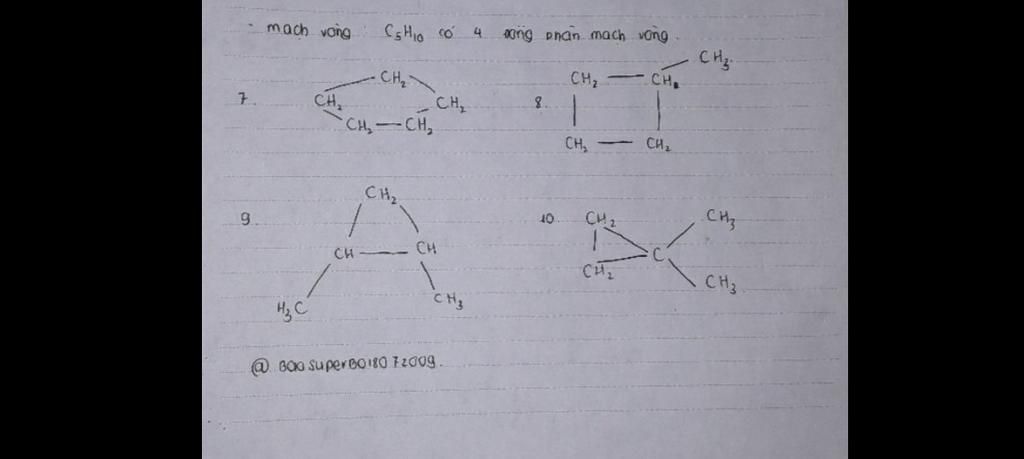 - mạch vòng : C₅H₁₀ có 4 đồng phân mạch vòng.
7. CH₂ CH₂ CH₂ CH₂ CH₂
8. CH₂ CH CH₃ CH₂ CH₂
9. CH₂ CH CH H₃C CH₃
10. CH₂ CH₂ C CH₃ CH₃